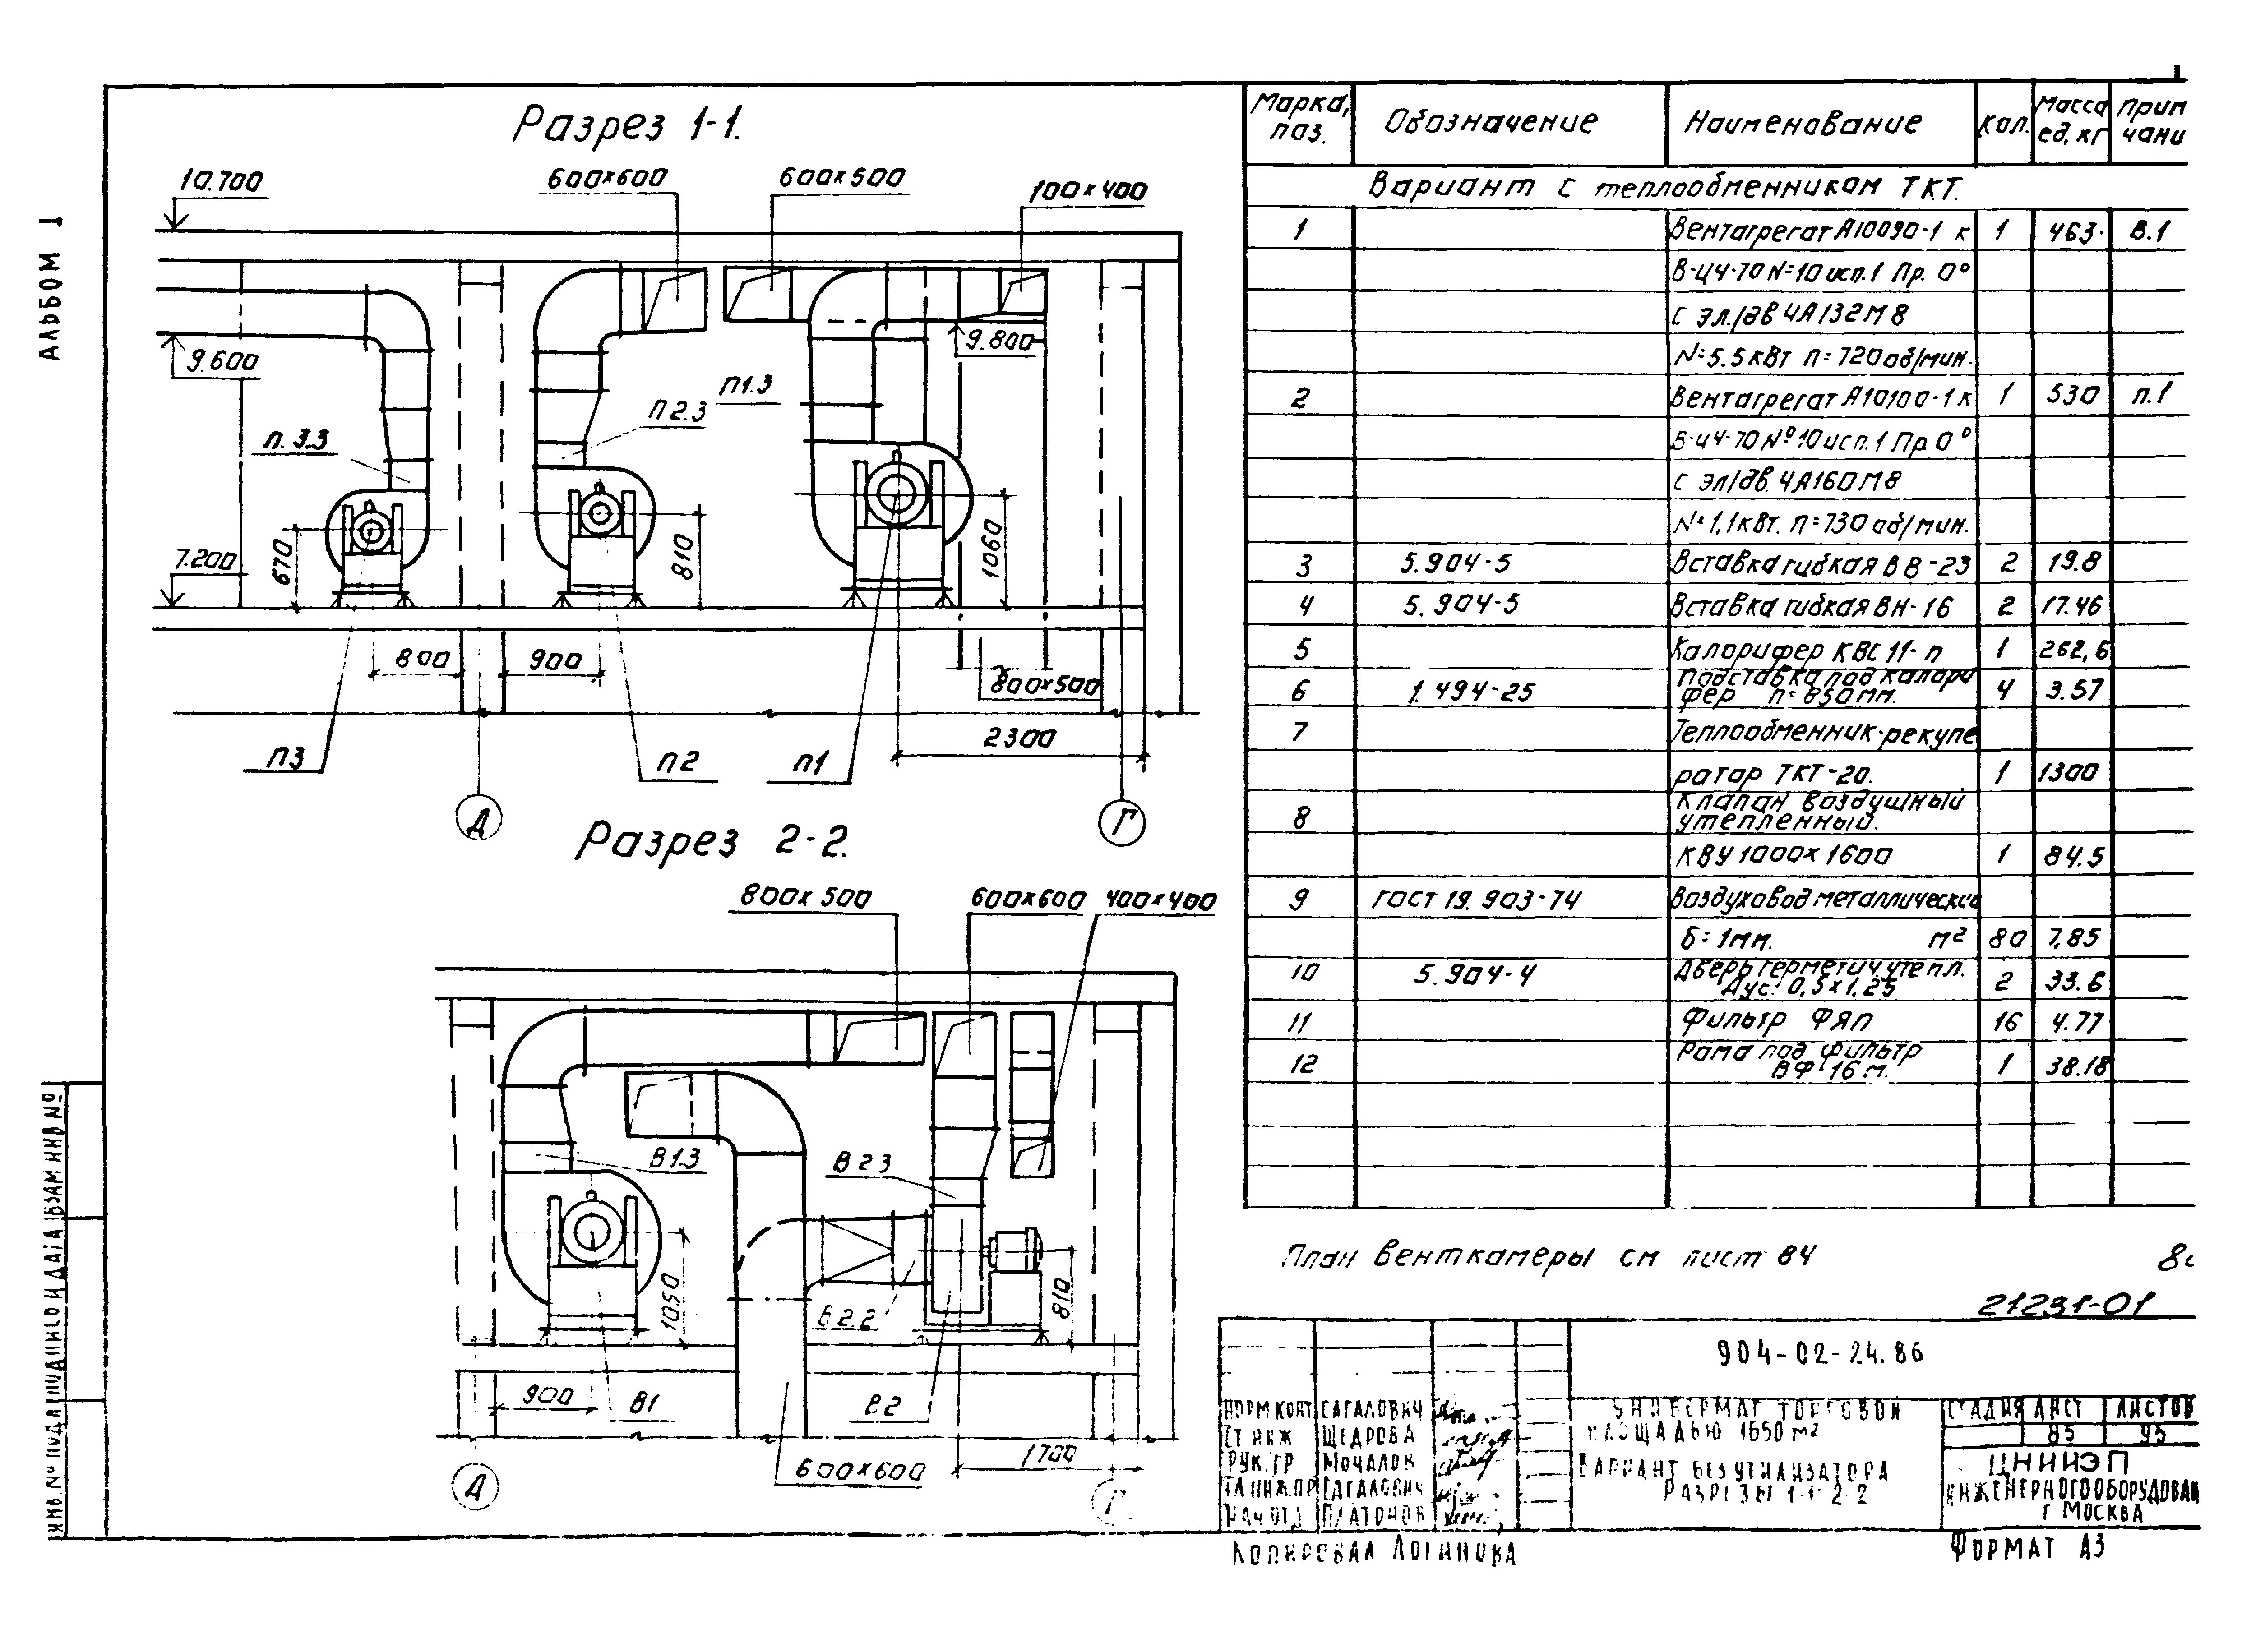 АЛЬБОМ I
Разрез 1-1.
10.700
600×600
600×500
100×400
9.600
9.800
П1.3
П2.3
П.3.3
7.200
670
810
1060
800
900
800×500
2300
П3
П2
П1
Д
Г
Разрез 2-2.
800×500
600×600
400×400
В1.3
В2.3
В2.2
1050
810
900
В1
В2
600×600
1700
Д
Г
Марка, поз.
Обозначение
Наименование
Кол.
Масса ед, кг
Прим
чани
Вариант с теплообменником ТКТ.
1 Вентагрегат А10090-1 к 1 463 В.1
В-Ц4-70 N=10 исп.1 Пр. 0°
с эл./дв 4А132М8
N=5.5 кВт п=720 об/мин.
2 Вентагрегат А10100-1 к 1 530 п.1
В-Ц4-70 №10 исп.1 Пр 0°
с эл/дв. 4А160М8
N=1,1 кВт. п=730 об/мин.
3 5.904-5 Вставка гибкая ВВ-23 2 19.8
4 5.904-5 Вставка гибкая ВН-16 2 17.46
5 Калорифер КВС 11-п 1 262,6
6 1.494-25 Подставка под калори
фер п=850мм. 4 3.57
7 Теплообменник-рекупе
ратор ТКТ-20. 1 1300
8 Клапан воздушный
утепленный.
КВУ 1000×1600 1 84.5
9 ГОСТ 19.903-74 Воздуховод металлически
б=1мм. м² 80 7,85
10 5.904-4 Дверь герметич.утепл.
Дус. 0,5×1,25 2 33.6
11 Фильтр ФЯП 16 4.77
12 Рама под фильтр
ВФ 16 м. 1 38.18
План венткамеры см лист 84
21231-01
904-02-24.86
НОРМ КОНТ САГАЛОВИЧ
СТ ИНЖ ЩЕДРОВА
РУК.ГР МОЧАЛОВ
ГЛ ИНЖ.ПР САГАЛОВИЧ
НАЧ ОТД ПЛАТОНОВ
УНИВЕРМАГ ТОРГОВОЙ
ПЛОЩАДЬЮ 1650 м²
ВАРИАНТ БЕЗ УТИЛИЗАТОРА
РАЗРЕЗЫ 1-1 2-2
СТАДИЯ ЛИСТ ЛИСТОВ
85 95
ЦНИИЭП
ИНЖЕНЕРНОГО ОБОРУДОВАН
Г МОСКВА
КОПИРОВАЛ ЛОГИНОВА
ФОРМАТ А3
ИНВ № ПОДЛ ПОДПИСЬ И ДАТА ВЗАМ ИНВ №